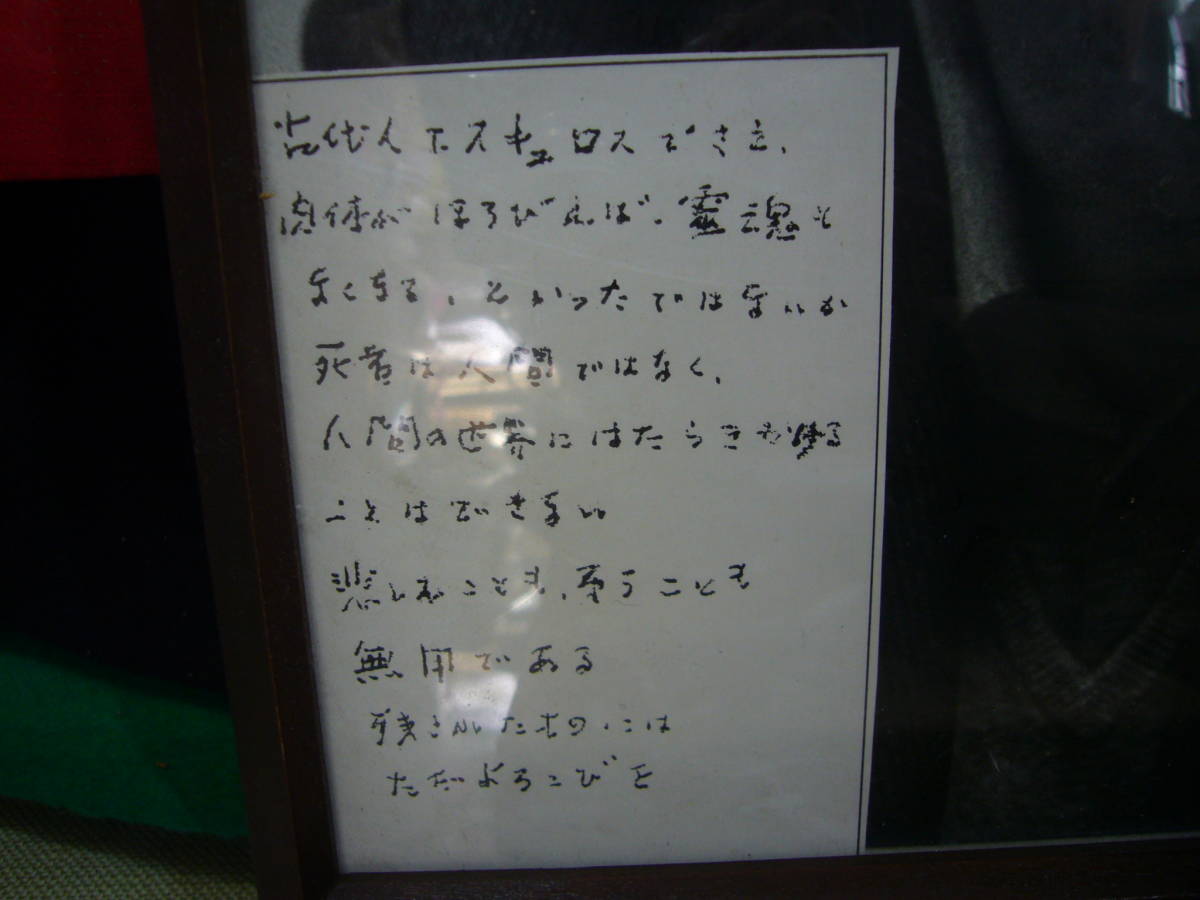 古代人アスキュロスでさえ、
肉体がほろびれば、靈魂も
なくなる、といったではないか
死者は人間ではなく、
人間の世界にはたらきかける
ことはできない
悲しむことも、うことも
無用である
残されたものには
ただよろこびを